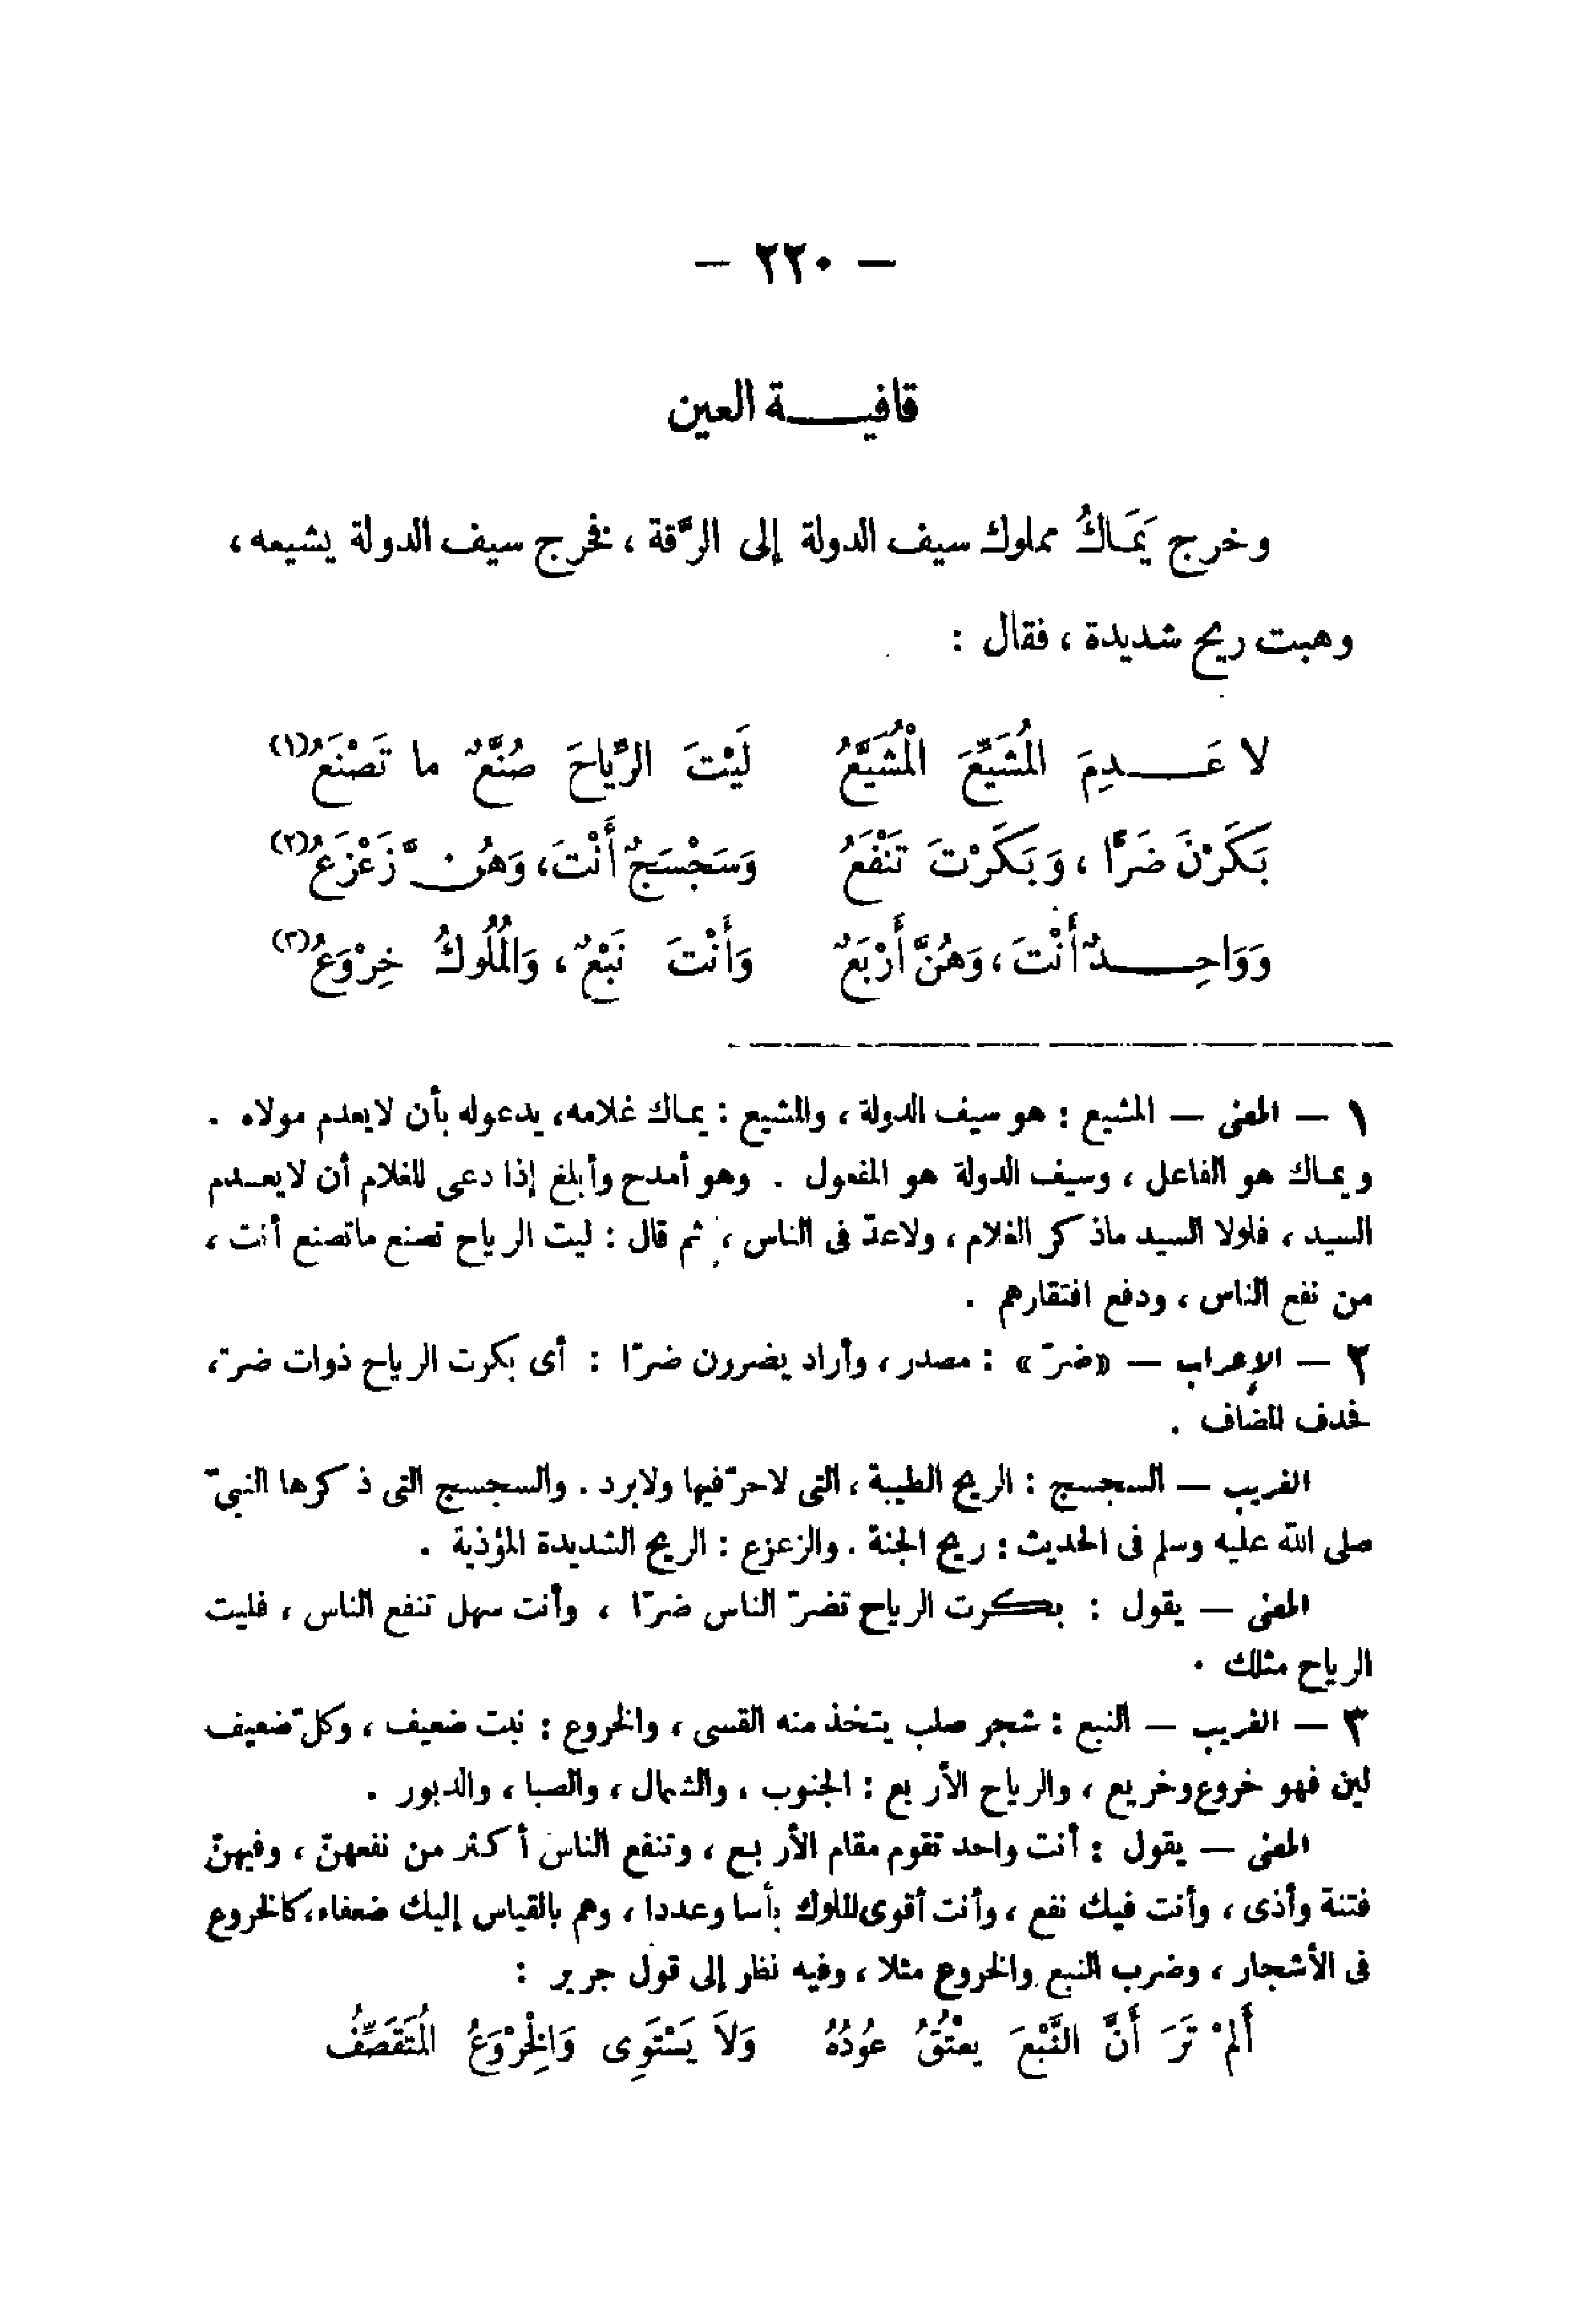 — ٢٢٠ —
قافيـــة العين
وخرج يَمَاكُ مملوك سيف الدولة إلى الرَّقة ، فخرج سيف الدولة يشيعه ،
وهبت ريح شديدة ، فقال :
لا عَـــدِمَ الْمُشَيِّعَ الْمُشَيَّعُ لَيْتَ الرِّيَاحَ صُنَّعٌ ما تَصْنَعُ(١)
بَكَرْنَ ضَرًّا ، وَبَكَرْتَ تَنْفَعُ وَسَجْسَجٌ أَنْتَ، وَهُنَّ زَعْزَعُ(٢)
وَوَاحِـــدٌ أَنْتَ ، وَهُنَّ أَرْبَعٌ وَأَنْتَ نَبْعٌ ، وَالْمُلُوكُ خِرْوَعُ(٣)
١ — المعنى — المشيع : هو سيف الدولة ، والمشيع : يماك غلامه، يدعوله بأن لايعدم مولاه .
ويماك هو الفاعل ، وسيف الدولة هو المفعول . وهو أمدح وأبلغ إذا دعى للغلام أن لايعـدم
السيد ، فلولا السيد ماذكر الغلام ، ولاعدّ فى الناس ، ثم قال : ليت الرياح تصنع ماتصنع أنت ،
من نفع الناس ، ودفع افتقارهم .
٢ — الإعراب — «ضرّ» : مصدر ، وأراد يضررن ضرّا : أى بكرت الرياح ذوات ضرّ،
فحذف المضاف .
الغريب — السجسج : الريح الطيبة ، التى لاحرّ فيها ولابرد . والسجسج التى ذكرها النبىّ
صلى الله عليه وسلم فى الحديث : ريح الجنة . والزعزع : الريح الشديدة المؤذية .
المعنى — يقول : بكرت الرياح تضرّ الناس ضرّا ، وأنت سهل تنفع الناس ، فليت
الرياح مثلك .
٣ — الغريب — النبع : شجر صلب يتخذ منه القسى ، والخروع : نبت ضعيف ، وكلّ ضعيف
لين فهو خروع وخريع ، والرياح الأربع : الجنوب ، والشمال ، والصبا ، والدبور .
المعنى — يقول : أنت واحد تقوم مقام الأربع ، وتنفع الناس أكثر من نفعهنّ ، وفيهنّ
فتنة وأذى ، وأنت فيك نفع ، وأنت أقوى الملوك بأسا وعددا ، وهم بالقياس إليك ضعفاء، كالخروع
فى الأشجار ، وضرب النبع والخروع مثلا ، وفيه نظر إلى قول جرير :
أَلَمْ تَرَ أَنَّ النَّبْعَ يعْتُقُ عُودُهُ وَلاَ يَسْتَوِى وَالْخِرْوَعُ الْمُتَقَصِّفُ